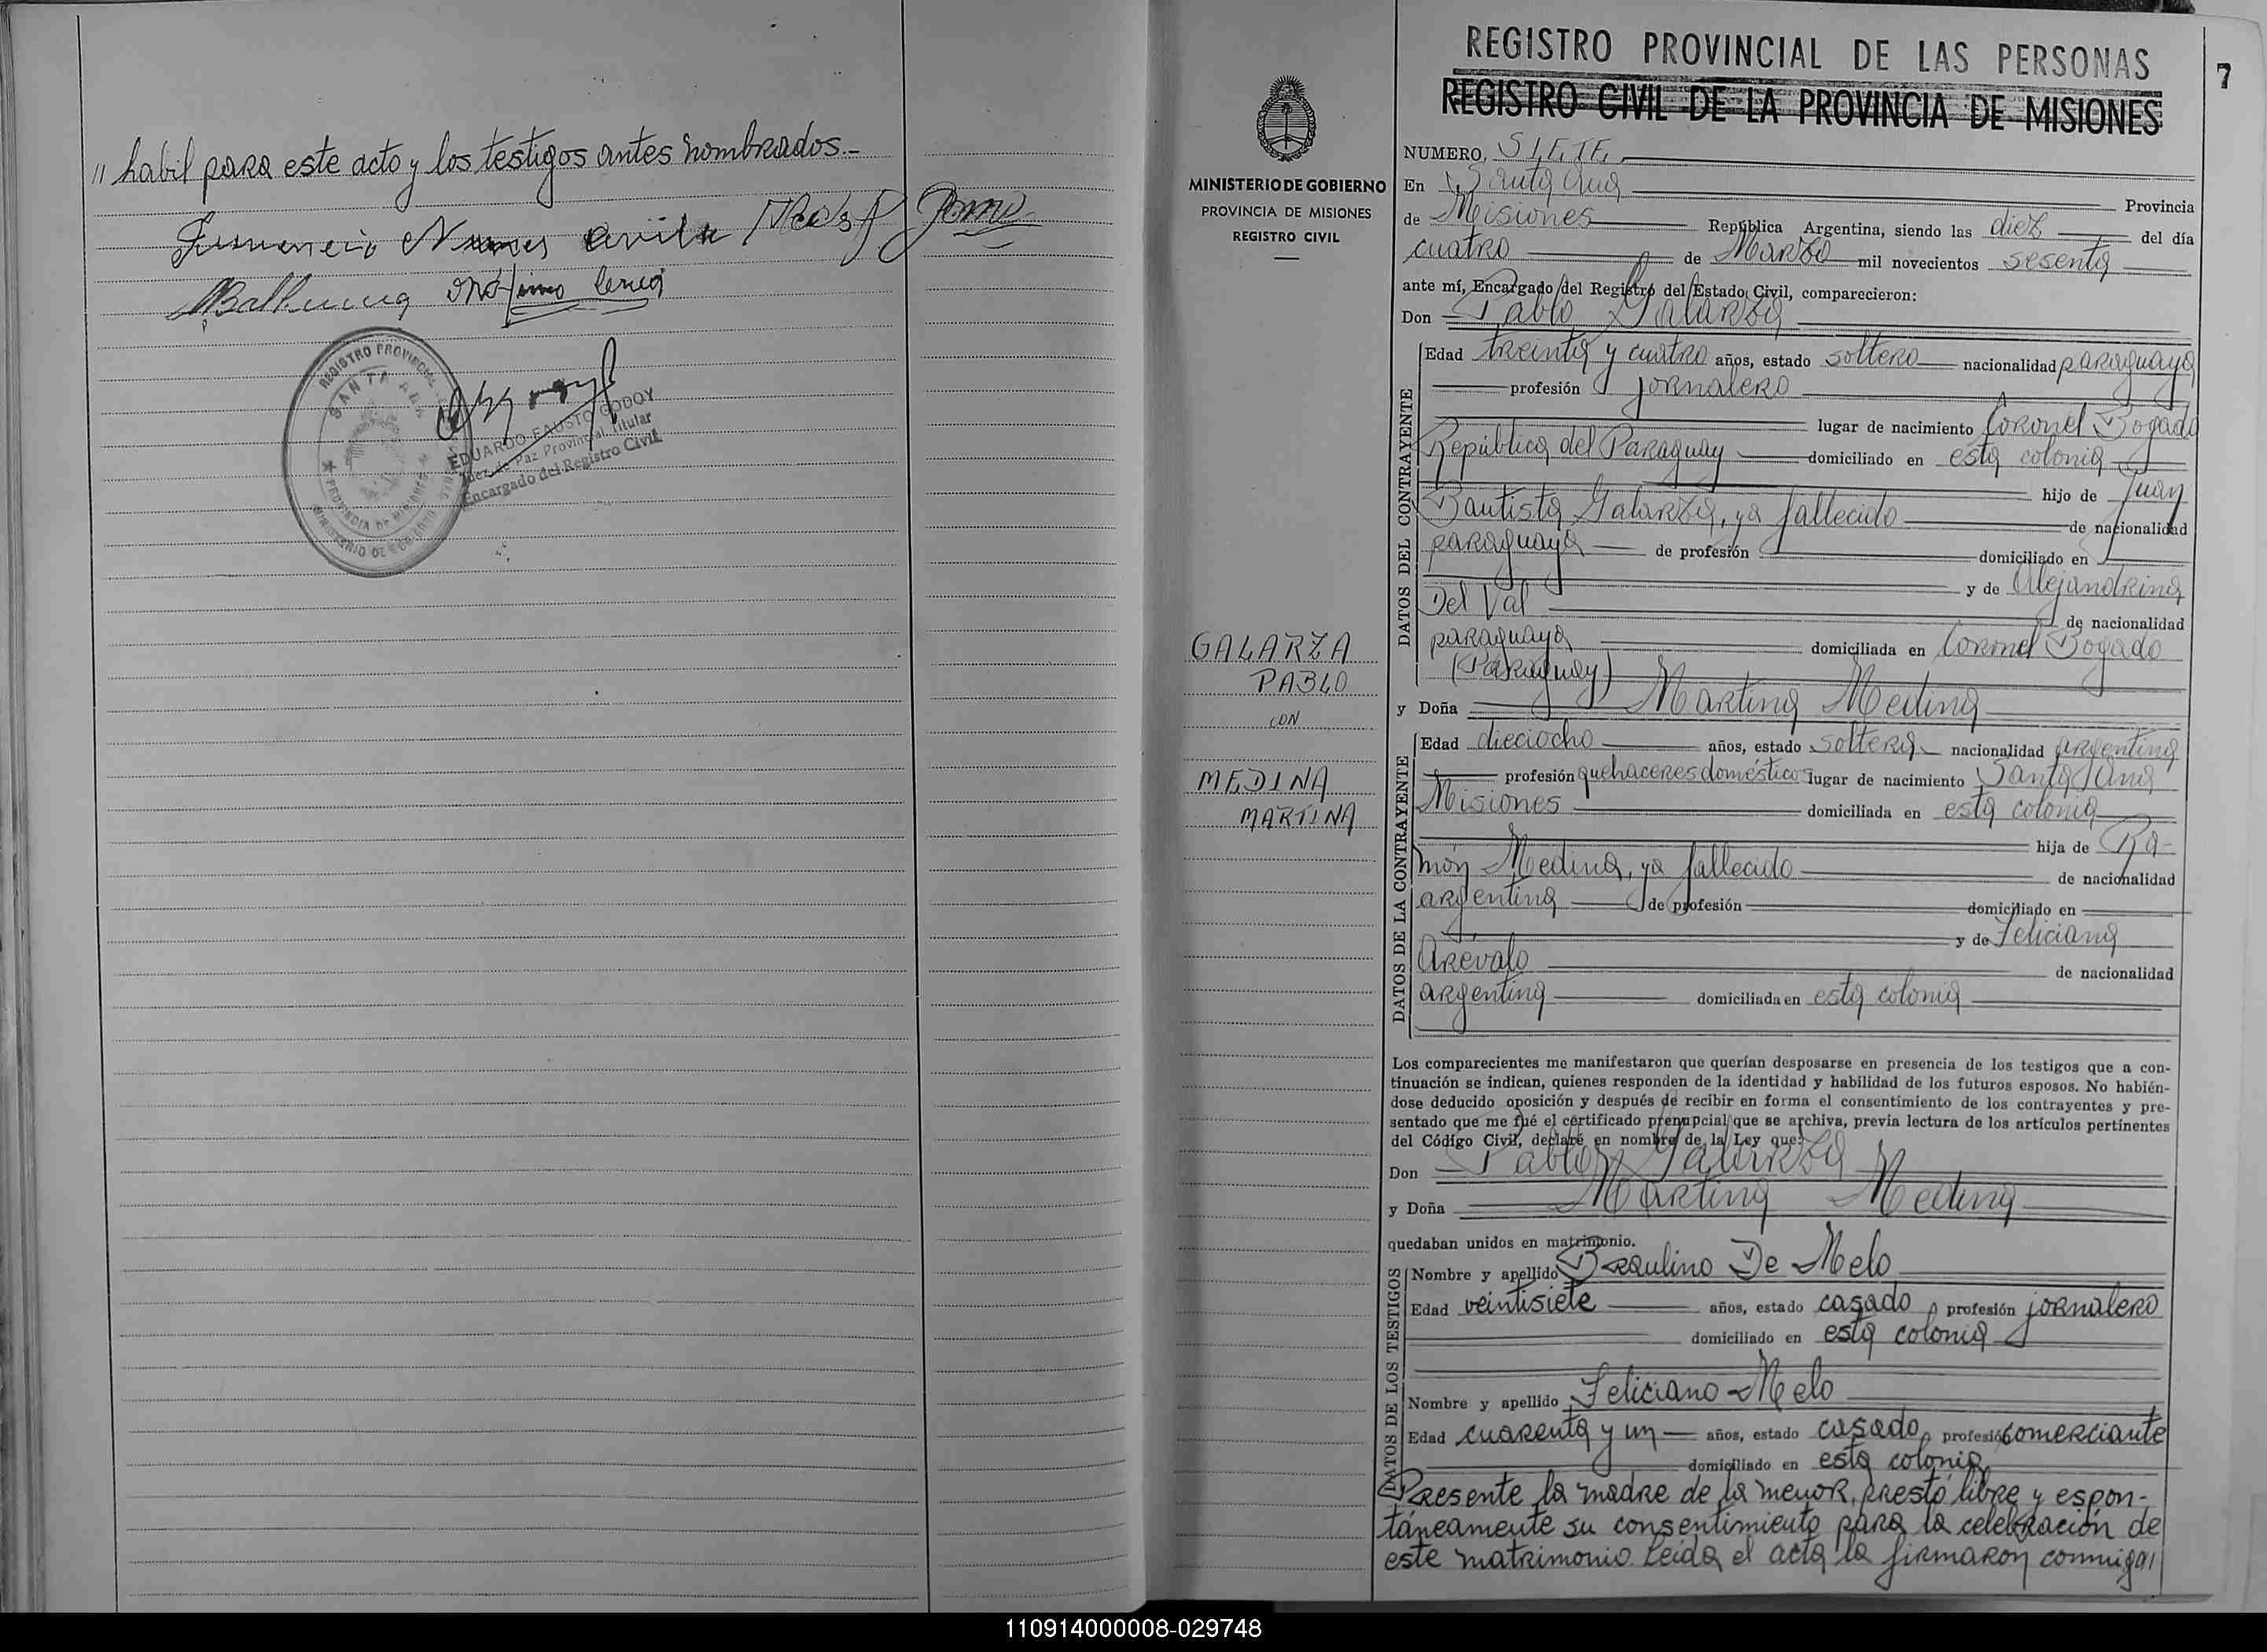 " habil para este acto y los testigos antes nombrados.-
REGISTRO PROVINCIAL
SANTA ANA
PROVINCIA DE MISIONES
MINISTERIO DE GOBIERNO
EDUARDO FAUSTO GODOY
Juez de Paz Provincial Titular
Encargado del Registro Civil
MINISTERIO DE GOBIERNO
PROVINCIA DE MISIONES
REGISTRO CIVIL
GALARZA
PABLO
CON
MEDINA
MARTINA
REGISTRO PROVINCIAL DE LAS PERSONAS
7
REGISTRO CIVIL DE LA PROVINCIA DE MISIONES
NUMERO, SIETE.
En Santa Ana Provincia
de Misiones República Argentina, siendo las diez del día
cuatro de Marzo mil novecientos sesenta
ante mí, Encargado del Registro del Estado Civil, comparecieron:
Don Pablo Galarza
DATOS DEL CONTRAYENTE
Edad treinta y cuatro años, estado soltero nacionalidad paraguaya
profesión jornalero
lugar de nacimiento Coronel Bogado
República del Paraguay domiciliado en esta colonia
hijo de Juan
Bautista Galarza, ya fallecido de nacionalidad
paraguaya de profesión domiciliado en
y de Alejandrina
Del Val de nacionalidad
paraguaya domiciliada en Coronel Bogado
(Paraguay)
y Doña Martina Medina
DATOS DE LA CONTRAYENTE
Edad dieciocho años, estado soltera nacionalidad argentina
profesión quehaceres domésticos lugar de nacimiento Santa Ana
Misiones domiciliada en esta colonia
hija de Ra-
món Medina, ya fallecido de nacionalidad
argentina de profesión domiciliado en
y de Feliciana
Arévalo de nacionalidad
argentina domiciliada en esta colonia
Los comparecientes me manifestaron que querían desposarse en presencia de los testigos que a con-
tinuación se indican, quienes responden de la identidad y habilidad de los futuros esposos. No habién-
dose deducido oposición y después de recibir en forma el consentimiento de los contrayentes y pre-
sentado que me fué el certificado prenupcial que se archiva, previa lectura de los artículos pertinentes
del Código Civil, declaré en nombre de la Ley que:
Don Pablo Galarza
y Doña Martina Medina
quedaban unidos en matrimonio.
DATOS DE LOS TESTIGOS
Nombre y apellido Braulino De Melo
Edad veintisiete años, estado casado profesión jornalero
domiciliado en esta colonia
Nombre y apellido Feliciano Melo
Edad cuarenta y un años, estado casado profesión comerciante
domiciliado en esta colonia
Presente la madre de la menor, prestó libre y espon-
táneamente su consentimiento para la celebración de
este matrimonio. Leída el acta la firmaron conmigo,
110914000008-029748